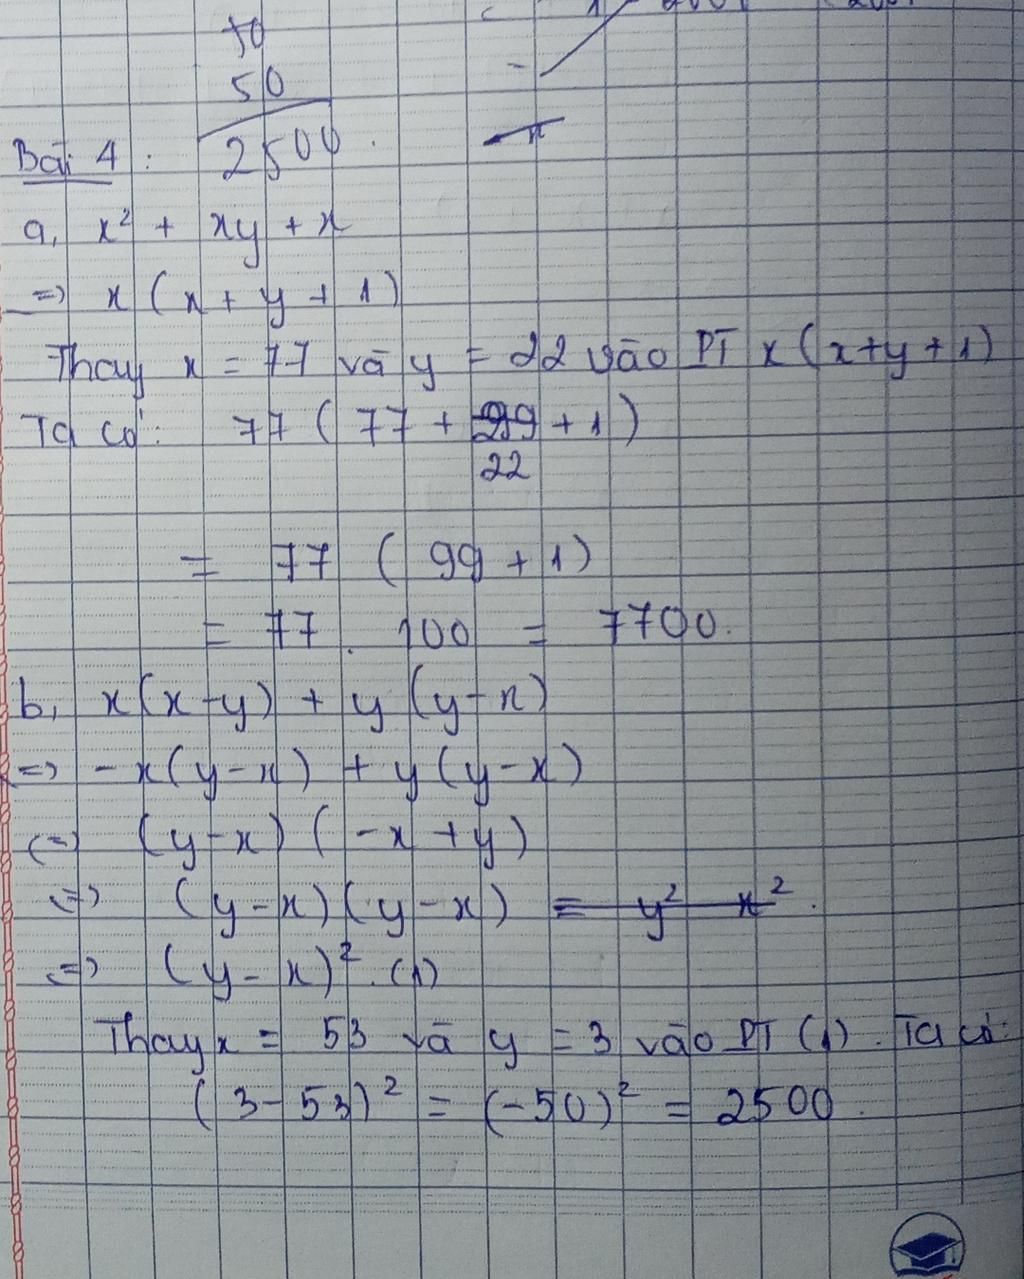 50
50
2500
Bài 4:
a, x² + xy + x
=> x(x + y + 1)
Thay x = 77 và y = 22 vào PT x(x+y+1)
Ta có: 77(77 + 99 + 1)
22
= 77 (99 + 1)
= 77 . 100 = 7700.
b, x(x-y) + y(y-x)
=> -x(y-x) + y(y-x)
(=) (y-x)(-x+y)
=> (y-x)(y-x) = y² - x².
=> (y-x)². (1)
Thay x = 53 và y = 3 vào PT (1). Ta có:
(3-53)² = (-50)² = 2500.